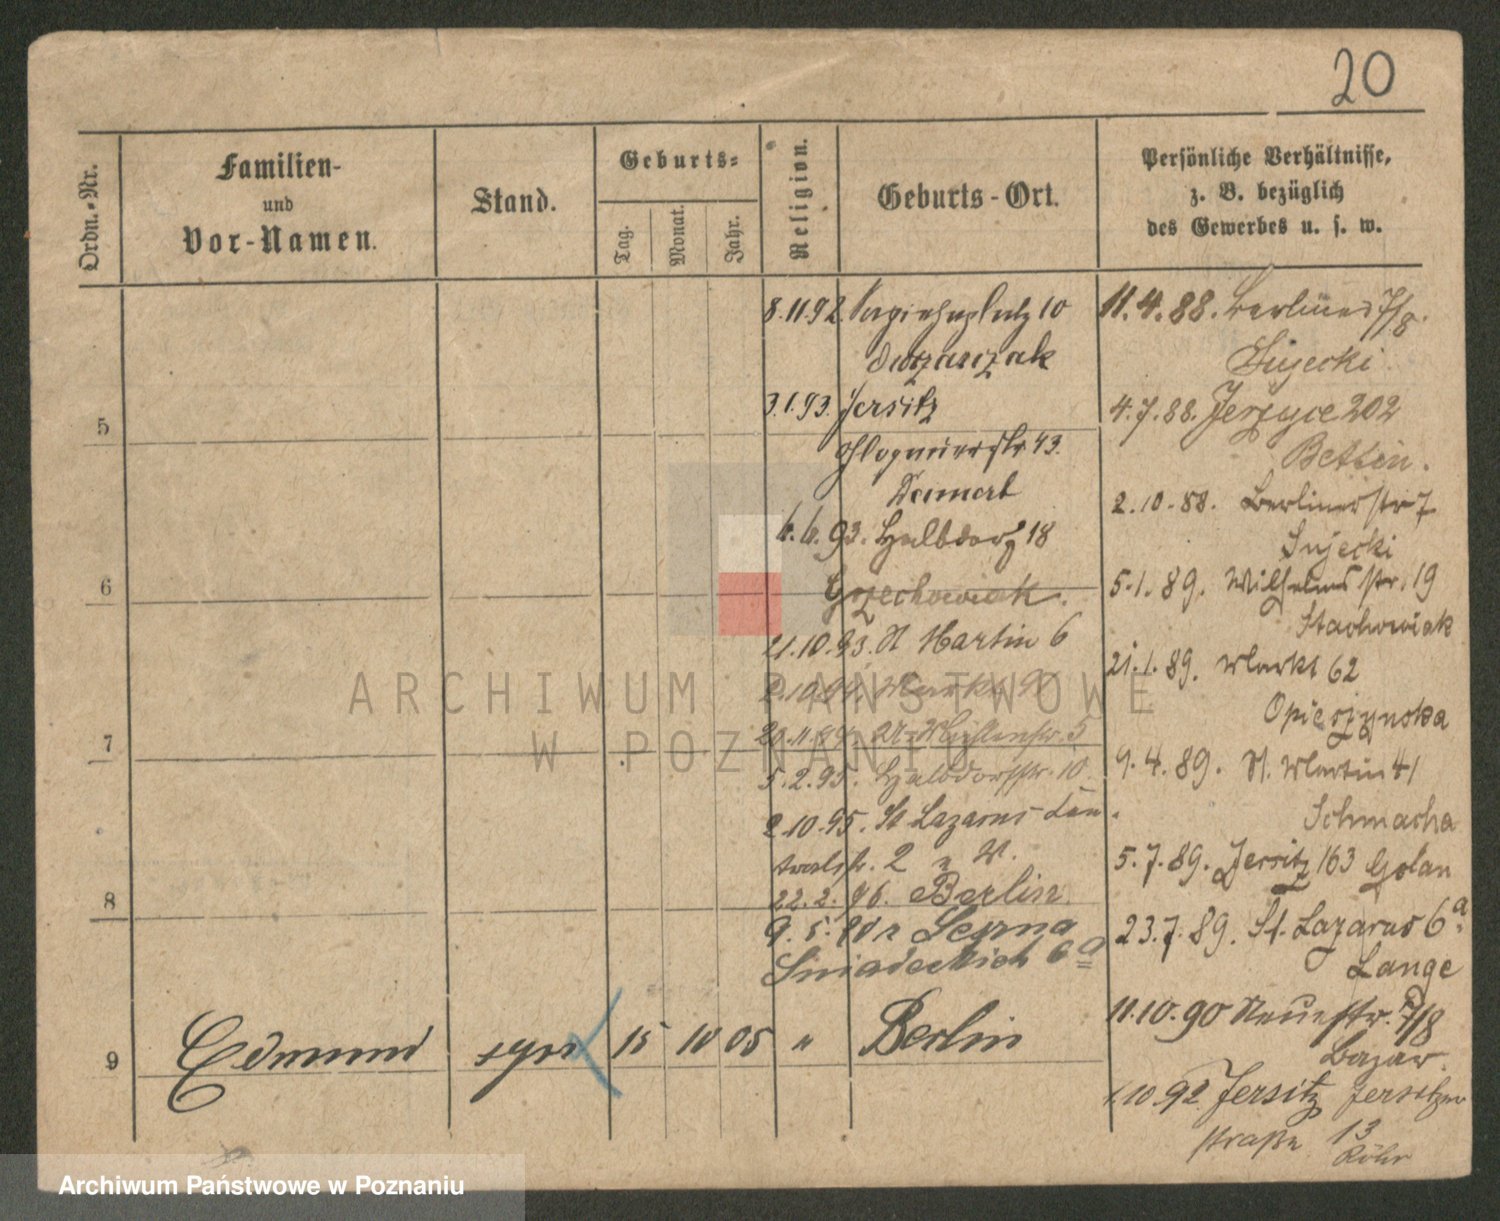 20
Ordn.-Nr.
Familien-
und
Vor-Namen.
Stand.
Geburts-
Tag.
Monat.
Jahr.
Religion.
Geburts-Ort.
Persönliche Verhältnisse,
z. B. bezüglich
des Gewerbes u. s. w.
8.11.92. 10
3.1.93. Jersitz
43.
6.6.93. Halbdorf 18
Grzechowiak.
21.10.93. St Martin 6
5.2.95. Halbdorfstr. 10
2.10.95. St Lazarus
22.2.96. Berlin
Śniadeckich 6a
11.4.88. Berliner 7/8.
Sujecki
4.7.88. Jerzyce 202
Bettin.
2.10.88. Berlinerstr 7
Sujecki
5.1.89. Wilhelmstr. 19
Stachowiak
21.1.89. Markt 62
Opieszynska
9.4.89. St. Martin 41
Schmacha
5.7.89. Jersitz 163 Golan
23.7.89. St. Lazarus 6a.
Lange
11.10.90 Neuestr. 7/8
Bazar.
1.10.92. Jersitz Jersitzer
straße 13
Röhr
5
6
7
8
9 Edmund syn 15 10 05 " Berlin
ARCHIWUM PAŃSTWOWE
W POZNANIU
Archiwum Państwowe w Poznaniu